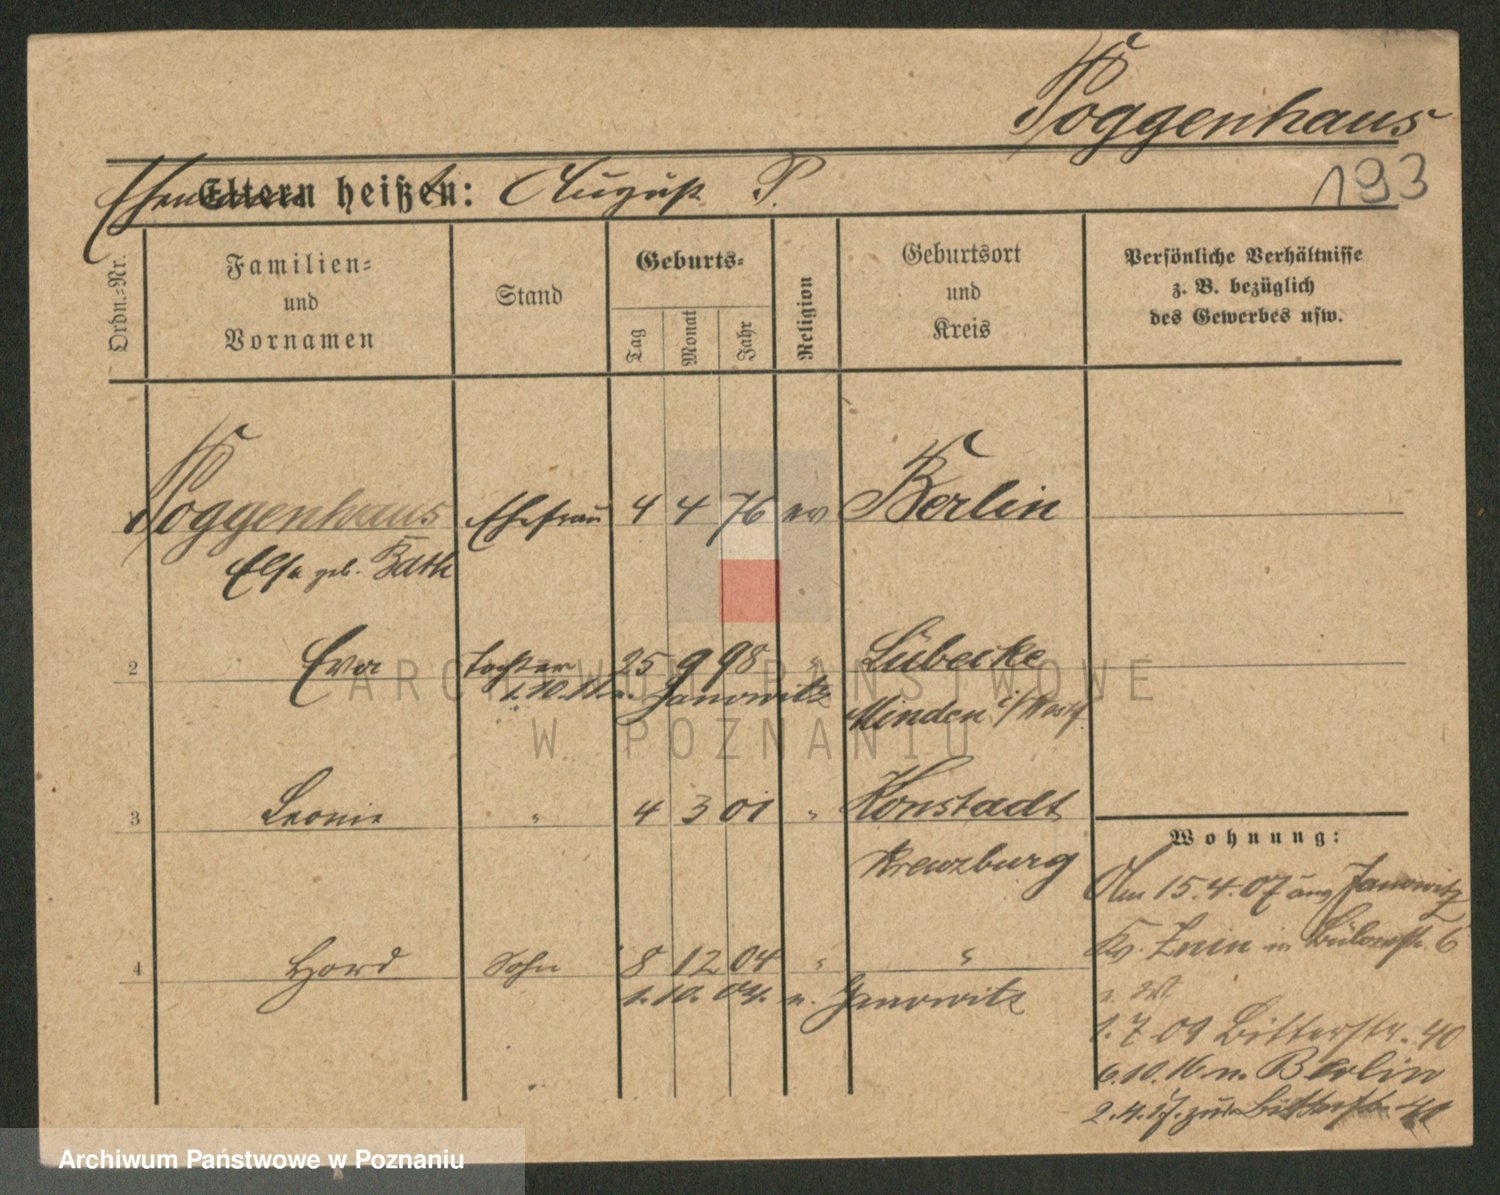 Poggenhaus
193
Eltern heißen: August P.
Ehemann
Ordn.-Nr.
Familien-
und
Vornamen
Stand
Geburts-
Tag
Monat
Jahr
Religion
Geburtsort
und
Kreis
Persönliche Verhältnisse
z. B. bezüglich
des Gewerbes usw.
Poggenhaus Ehefrau 4 4 76 ev Berlin
Elsa geb. Bath
2 Eva Tochter 25 9 98 " Lübecke
1.10.11 n. Janowitz Minden i/Westf.
3 Leonie " 4 3 01 " Konstadt
Kreuzburg
4 Hord Sohn 8 12 04 " "
1.10. n. Janowitz
Wohnung:
Am 15.4.07 aus Janowitz
Kr. Znin in Bülowstr. 6
1.7.09 Bitterstr. 40
6.10.16 n. Berlin
2.4.17. zur. Bitterstr. 40
ARCHIWUM PAŃSTWOWE
W POZNANIU
Archiwum Państwowe w Poznaniu